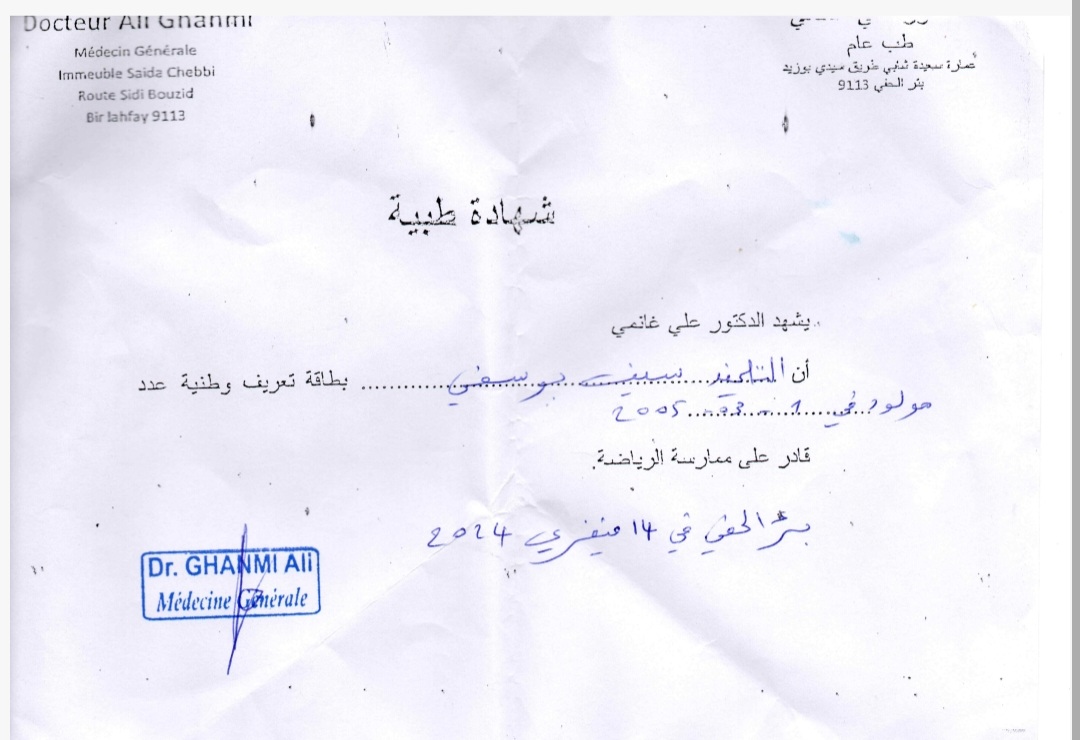 Docteur Ali Ghanmi
Médecin Générale
Immeuble Saida Chebbi
Route Sidi Bouzid
Bir lahfay 9113
طب عام
عمارة سعيدة شابي طريق سيدي بوزيد
بئر الحفي 9113
شهادة طبية
يشهد الدكتور علي غانمي
أن التلميذ سيف يوسفي بطاقة تعريف وطنية عدد
مولود في 1 2005
قادر على ممارسة الرياضة.
بئر الحفي في 14 فيفري 2024
Dr. GHANMI Ali
Médecine Générale